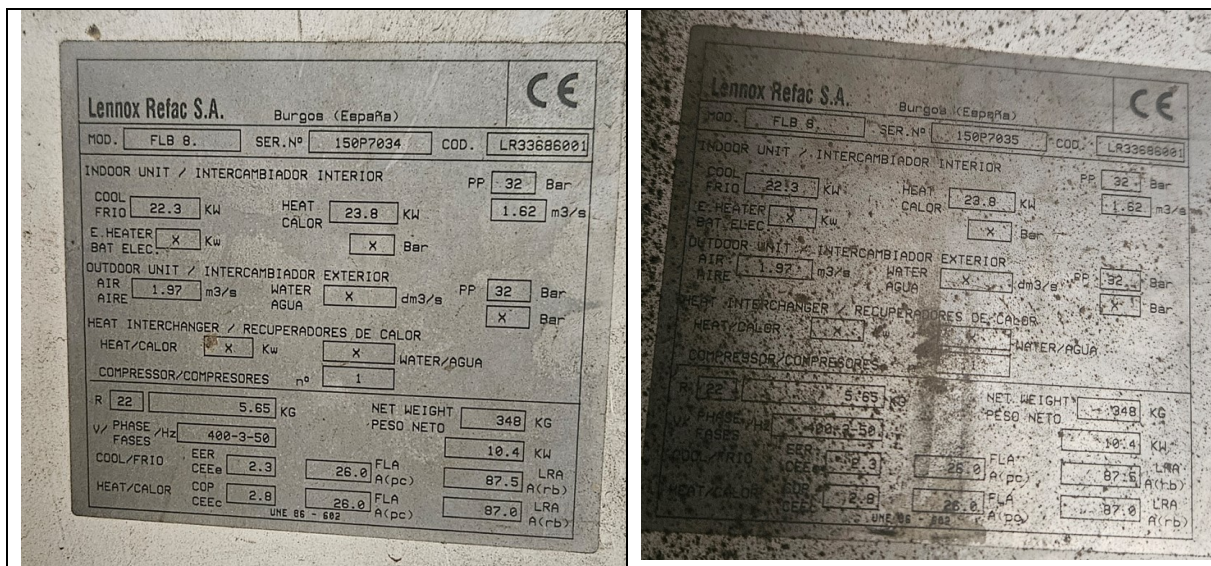 Lennox Refac S.A. Burgos (España) CE
MOD. FLB 8. SER.Nº 150P7034 COD. LR33686001
INDOOR UNIT / INTERCAMBIADOR INTERIOR PP 32 Bar
COOL FRIO 22.3 KW HEAT CALOR 23.8 KW 1.62 m3/s
E.HEATER BAT ELEC. X Kw X Bar
OUTDOOR UNIT / INTERCAMBIADOR EXTERIOR
AIR AIRE 1.97 m3/s WATER AGUA X dm3/s PP 32 Bar
X Bar
HEAT INTERCHANGER / RECUPERADORES DE CALOR
HEAT/CALOR X Kw X WATER/AGUA
COMPRESSOR/COMPRESORES nº 1
R 22 5.65 KG NET WEIGHT PESO NETO 348 KG
V/ PHASE FASES /Hz 400-3-50 10.4 KW
COOL/FRIO EER CEEe 2.3 26.0 FLA A(pc) 87.5 LRA A(rb)
HEAT/CALOR COP CEEc 2.8 26.0 FLA A(pc) 87.0 LRA A(rb)
UNE 86 - 602
Lennox Refac S.A. Burgos (España) CE
MOD. FLB 8. SER.Nº 150P7035 COD. LR33686001
INDOOR UNIT / INTERCAMBIADOR INTERIOR PP 32 Bar
COOL FRIO 22.3 KW HEAT CALOR 23.8 KW 1.62 m3/s
E.HEATER BAT ELEC. X Kw X Bar
OUTDOOR UNIT / INTERCAMBIADOR EXTERIOR
AIR AIRE 1.97 m3/s WATER AGUA X dm3/s PP 32 Bar
X Bar
HEAT INTERCHANGER / RECUPERADORES DE CALOR
HEAT/CALOR X WATER/AGUA
COMPRESSOR/COMPRESORES
R 22 5.65 KG NET WEIGHT PESO NETO 348 KG
V/ PHASE FASES /Hz 400-3-50 10.4 KW
COOL/FRIO EER CEEe 2.3 26.0 FLA A(pc) 87.5 LRA A(rb)
HEAT/CALOR COP CEEc 2.8 26.0 FLA A(pc) 87.0 LRA A(rb)
UNE 86 - 602